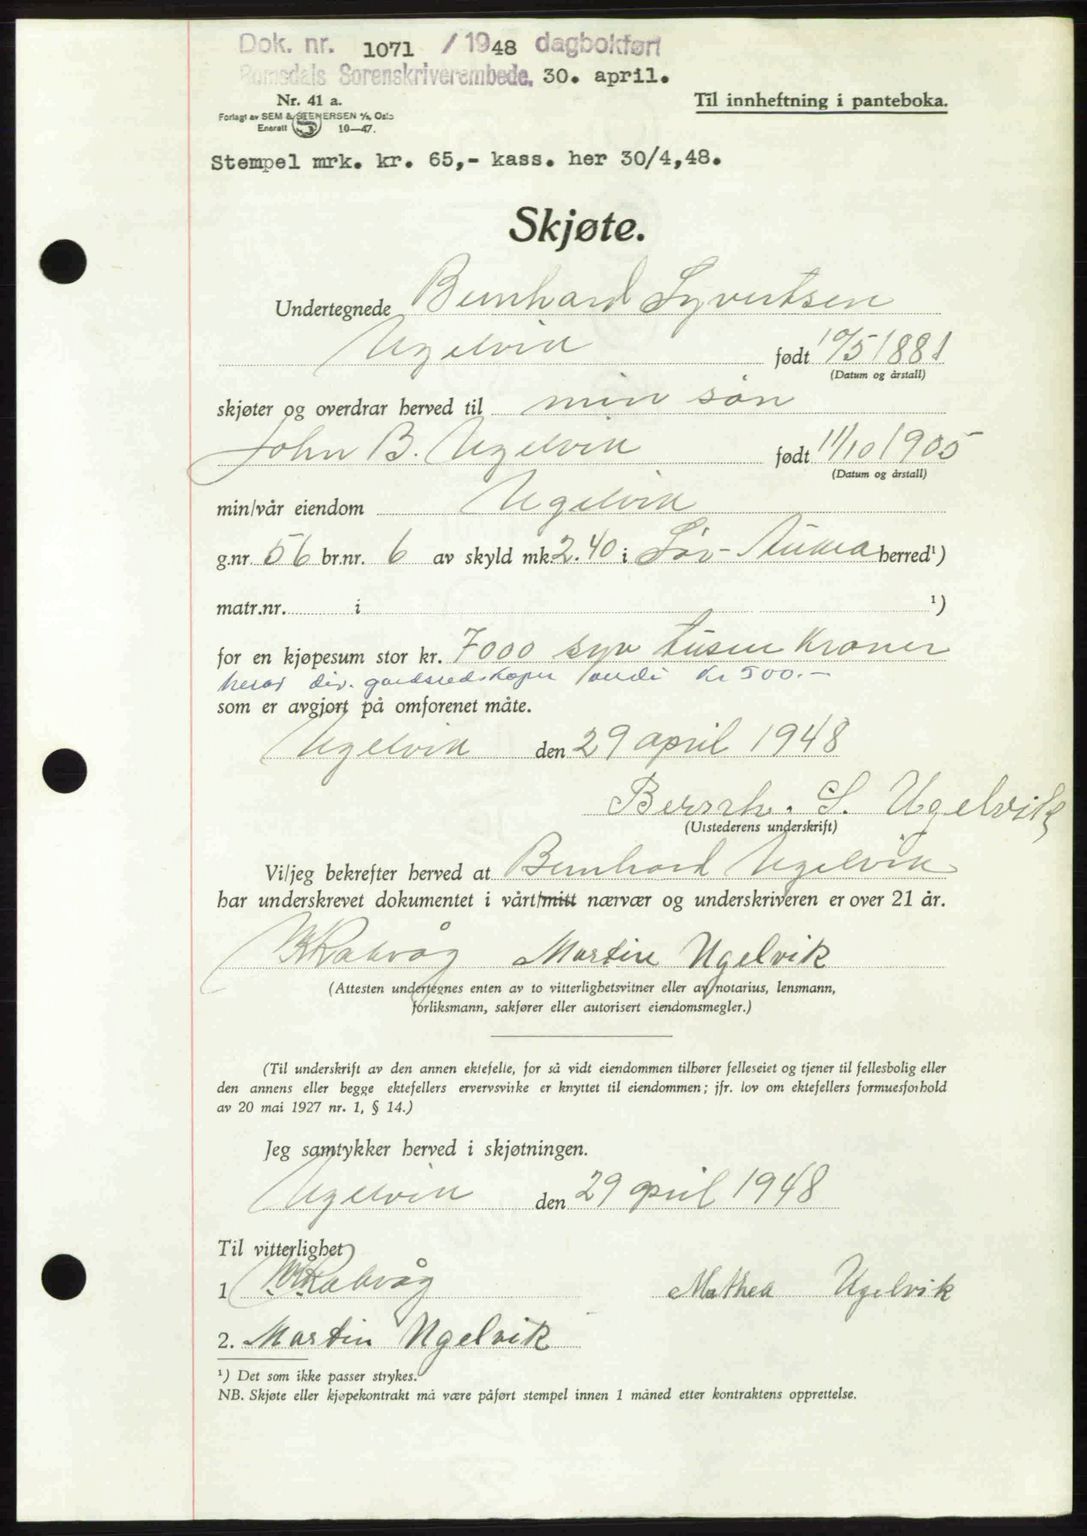 Dok. nr. 1071 / 1948 dagbokført
Romsdals Sorenskriverembede. 30. april.
Nr. 41 a.
Til innheftning i panteboka.
Forlagt av SEM & STENERSEN A/S, Oslo
Enerett 10—47.
Stempel mrk. kr. 65,- kass. her 30/4,48.
Skjøte.
Undertegnede Bernhard Syvertsen
Ugelvik født 10/5 1881
(Datum og årstall)
skjøter og overdrar herved til min søn
John B. Ugelvik født 11/10 1905
(Datum og årstall)
min/vår eiendom Ugelvik
g.nr. 56 br.nr. 6 av skyld mk. 2.40 i Sør-Aukra herred¹)
matr.nr. i ¹)
for en kjøpesum stor kr. 7000 syv tusen Kroner
herav div. gardsredskaper verdi Kr 500.—
som er avgjort på omforenet måte.
Ugelvik den 29 april 1948
Bernh. S. Ugelvik
(Utstederens underskrift)
Vi/jeg bekrefter herved at Bernhard Ugelvik
har underskrevet dokumentet i vårt/mitt nærvær og underskriveren er over 21 år.
Rakvåg Martin Ugelvik
(Attesten undertegnes enten av to vitterlighetsvitner eller av notarius, lensmann,
forliksmann, sakfører eller autorisert eiendomsmegler.)
(Til underskrift av den annen ektefelle, for så vidt eiendommen tilhører felleseiet og tjener til fellesbolig eller
den annens eller begge ektefellers ervervsvirke er knyttet til eiendommen; jfr. lov om ektefellers formuesforhold
av 20 mai 1927 nr. 1, § 14.)
Jeg samtykker herved i skjøtningen.
Ugelvik den 29 april 1948
Til vitterlighet
1 Rakvåg Mathea Ugelvik
2. Martin Ugelvik
¹) Det som ikke passer strykes.
NB. Skjøte eller kjøpekontrakt må være påført stempel innen 1 måned etter kontraktens opprettelse.